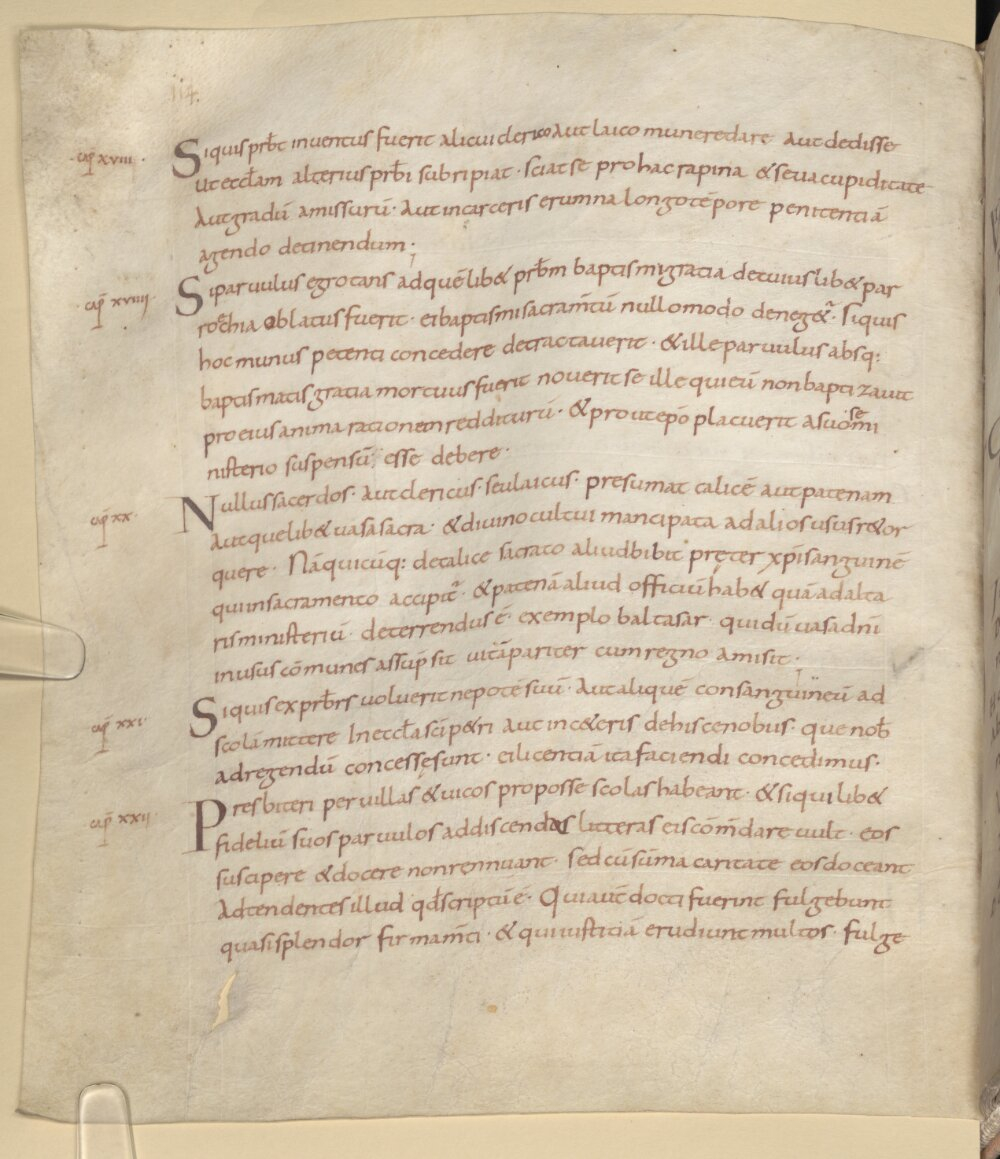 114.
cap̄ xviii · Siquis prb̄t inventus fuerit alicui clerico aut laico munere dare aut dedisse
ut eccl̄am alterius prb̄i subripiat · sciat se pro hac rapina & seva cupiditate
aut gradū amissurū · aut in carceris erumna longo tēpore penitentiā
agendo detinendum;
cap̄ xviiii · Si parvulus egrotans ad quēlib& prb̄m baptismi gratia de cuius lib& par
rochia oblatus fuerit · ei baptismi sacram̄tū nullo modo deneg&ur · Siquis
hoc munus petenti concedere detractaverit · & ille parvulus absq:
baptismatis gratia mortuus fuerit noverit se ille qui eū non baptizavit
pro eius anima rationem redditurū · & prout ep̄o placuerit a suo mi
se
nisterio suspensū; esse debere ·
cap̄ xx · Nullus sacerdos · aut clericus · seu laicus · presumat calicē aut patenam
aut quelib& vasa sacra · & divino cultui mancipata ad alios usus r&or
quere · Nā quicūq: de calice sacrato aliud bibit pręter xp̄i sanguinē
qui in sacramento accipit̄ · & patenā aliud officiū hab& quā ad alta
ris ministeriū · deterrendus ē · exemplo baltasar · qui dū vasa dn̄i
in usus cōmunes assūpsit vitā pariter cum regno amisit ·
cap̄ xxi · Siquis ex prb̄rs voluerit nepotē suū · aut aliquē consanguineū ad
scolā mittere In eccl̄a sc̄i p&ri aut in c&eris de his cenobiis · que nob̄
ad regendū concessę sunt · ei licentiā ita faciendi concedimus ·
cap̄ xxii · Presbiteri per villas & vicos proposse scolas habeant · & si quilib&
fideliū suos parvulos addiscendas litteras eis cōm̄dare vult · eos
suscipere & docere non rennuant · sed cū sūma caritate eos doceant
Adtendentes illud qd̄ scriptū ē · Qui aūt docti fuerint fulgebunt
quasi splendor firmam̄ti · & qui iustitiā erudiunt multos · fulge